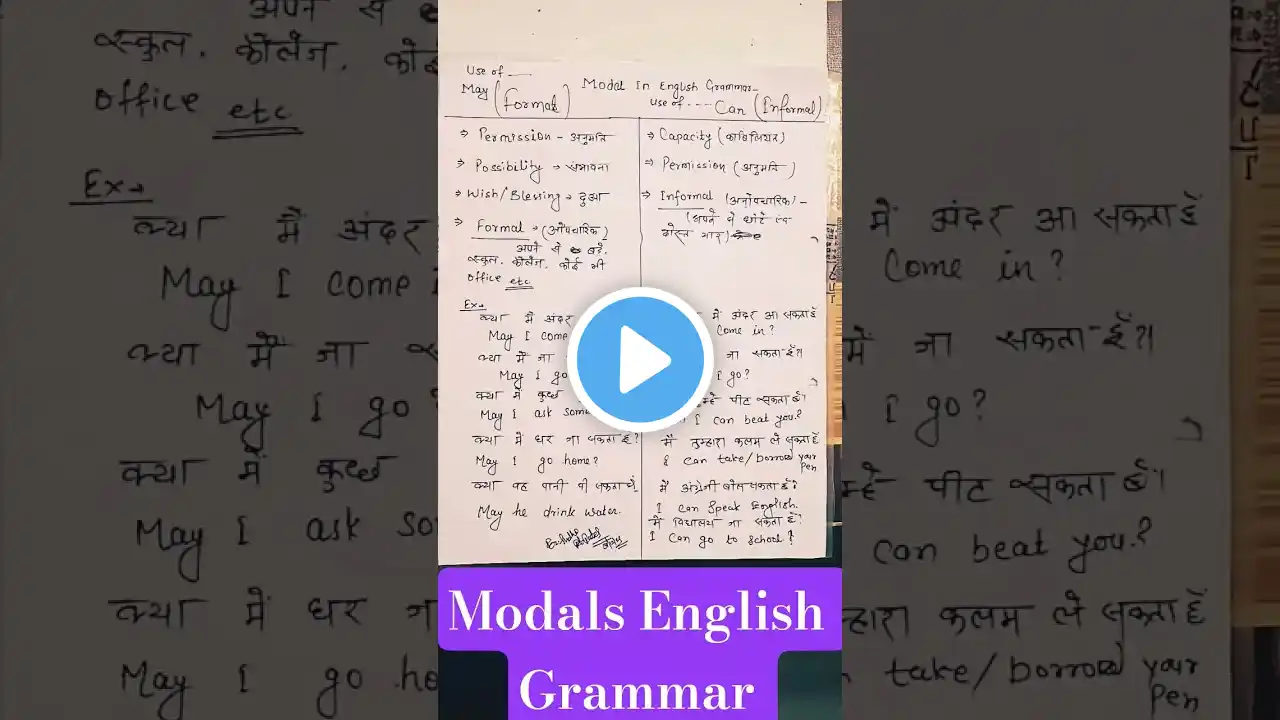 Use of
May (Formal)
Modal In English Grammar
Use of .... Can (Informal)
→ Permission - अनुमति
→ Possibility → संभावना
→ Wish/Blessing → दुआ
→ Formal → (औपचारिक)
अपने से बड़े,
स्कूल, कॉलेज, कोई भी
office etc
Ex→
क्या मैं अंदर
May I come
क्या मैं जा
May I go
क्या मैं कुछ
May I ask some
क्या मैं घर जा सकता हूँ?
May I go home?
क्या वह पानी पी सकता है
May he drink water.
→ Capacity (काबिलियत)
→ Permission (अनुमति)
→ Informal (अनौपचारिक) -
(अपने से छोटे एवं
दोस्त भाई)
में अंदर आ सकता हूँ
Come in?
जा सकता हूँ?
I go?
पीट सकता हूँ।
I can beat you?
मैं तुम्हारा कलम ले सकता हूँ
I can take/borrow your
Pen
मैं अंग्रेजी बोल सकता हूँ?
I can Speak English.
मैं विद्यालय जा सकता हूँ?
I Can go to School?
Modals English
Grammar